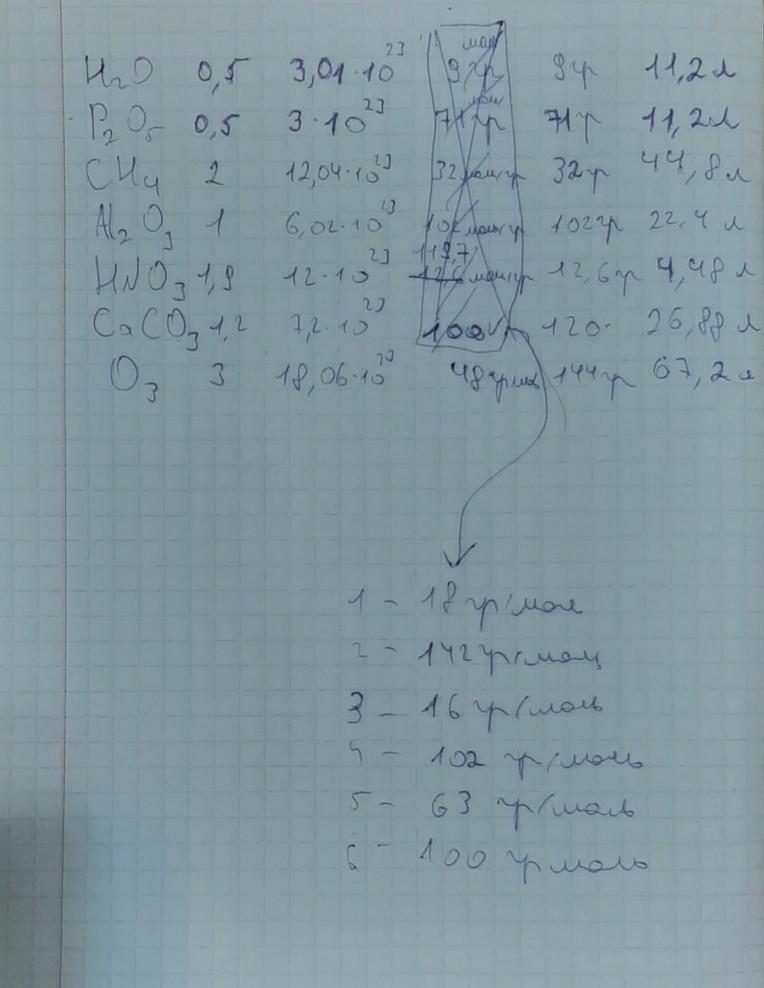 H₂O 0,5 3,01·10²³ 9 гр 9 гр 11,2 л
P₂O₅ 0,5 3·10²³ 71 гр 71 г 11,2 л
CH₄ 2 12,04·10²³ 32 32 гр 44,8 л
Al₂O₃ 1 6,02·10²³ 102 моль/гр 102 гр 22,4 л
119,7
HNO₃ 1,9 12·10²³ моль/гр 12,6 гр 4,48 л
CaCO₃ 1,2 7,2·10²³ 100 120 26,88 л
O₃ 3 18,06·10²³ 48 144 гр 67,2 л
1 - 18 гр/мол
2 - 142 гр/мол
3 - 16 гр/моль
4 - 102 гр/моль
5 - 63 гр/моль
6 - 100 гр моль